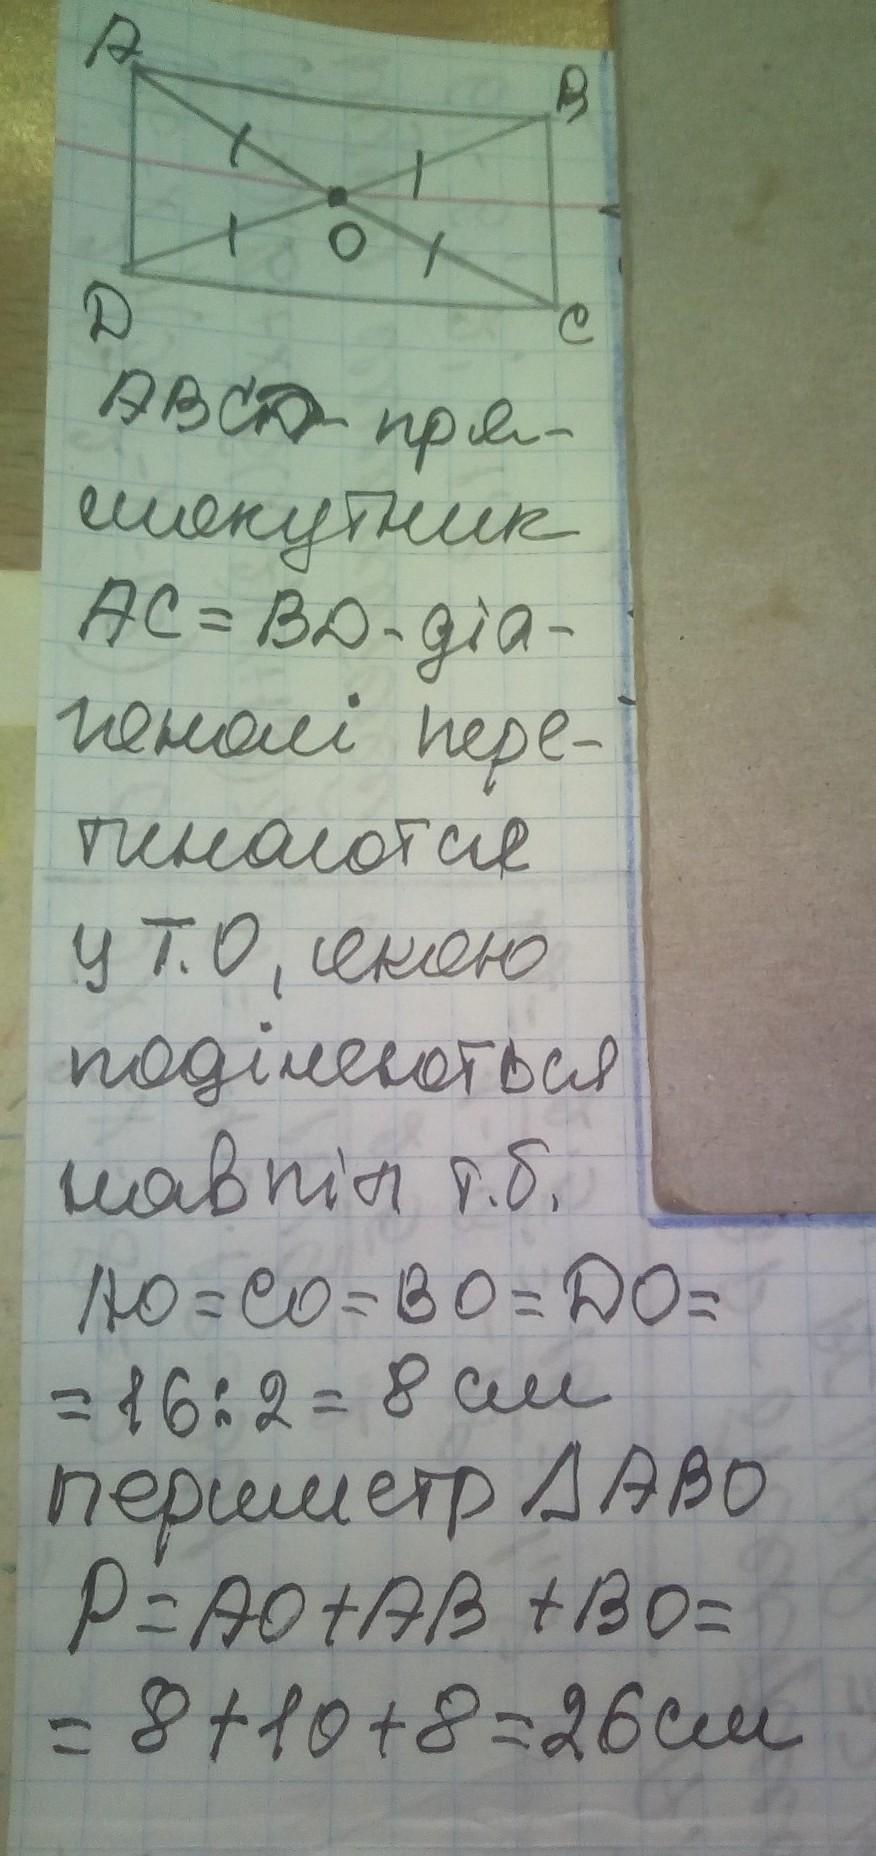 A
B
O
D
C
ABCD - пря-
мокутник
AC = BD - діа-
гоналі пере-
тинаются
у т. О, якою
поділяються
навпіл т.б.
AO = CO = BO = DO =
= 16 : 2 = 8 см
периметр ΔABO
P = AO + AB + BO =
= 8 + 10 + 8 = 26 см